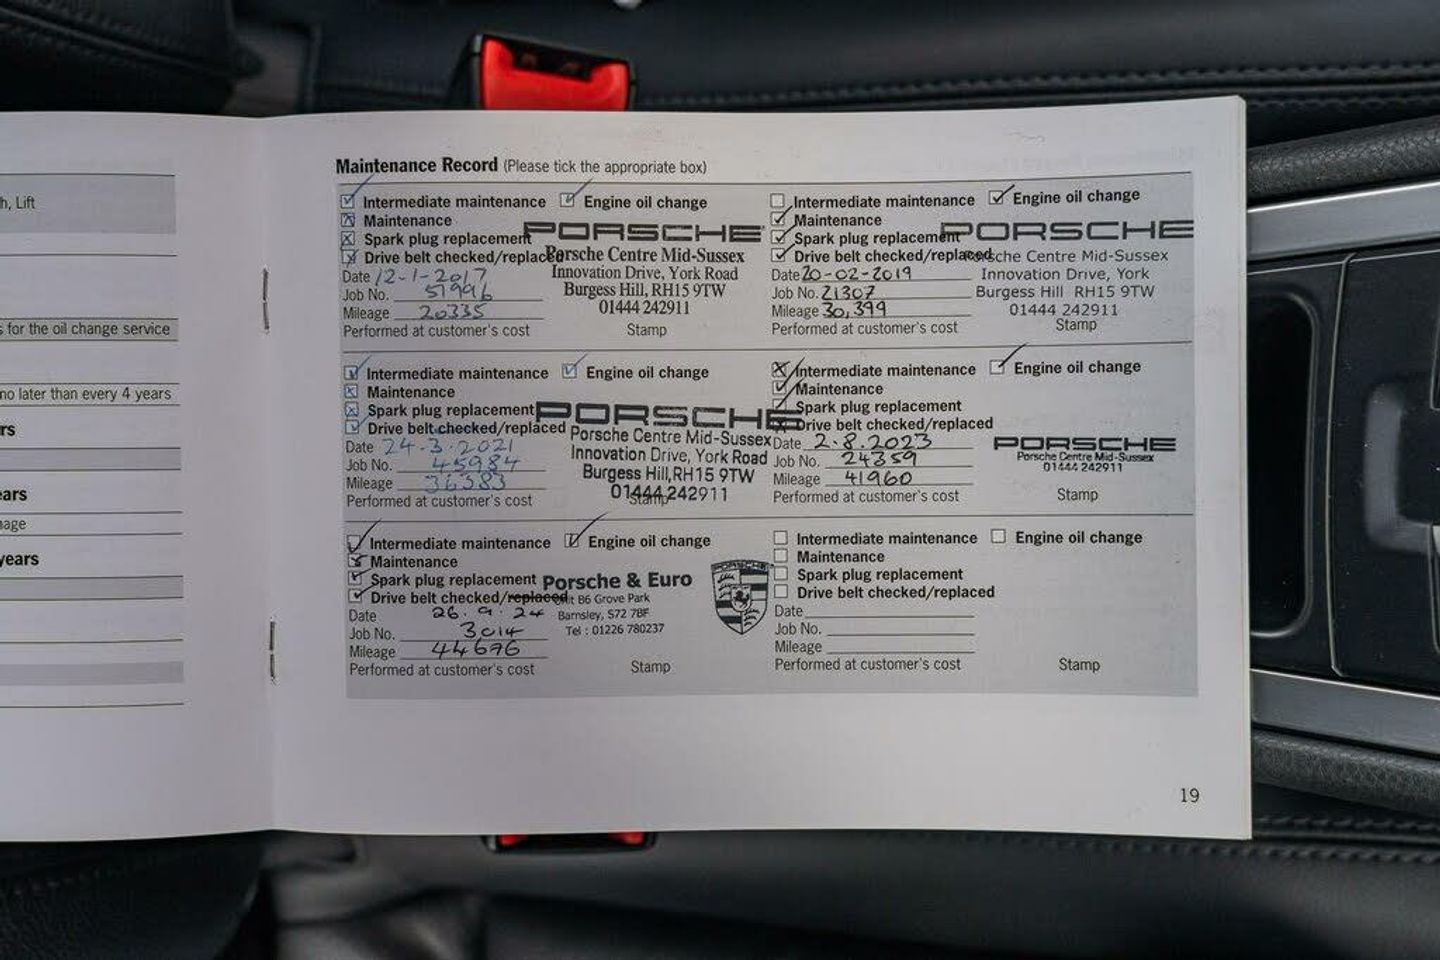 h, Lift
s for the oil change service
no later than every 4 years
rs
ears
nage
years
Maintenance Record (Please tick the appropriate box)
Intermediate maintenance Engine oil change
Maintenance
PORSCHE
Spark plug replacement
Drive belt checked/replaced
Porsche Centre Mid-Sussex
Date 12-1-2017
Innovation Drive, York Road
Job No. 51996
Burgess Hill, RH15 9TW
Mileage 20335
01444 242911
Performed at customer's cost Stamp
Intermediate maintenance Engine oil change
Maintenance
PORSCHE
Spark plug replacement
Drive belt checked/replaced
Porsche Centre Mid-Sussex
Date 20-02-2019
Innovation Drive, York
Job No. 21307
Burgess Hill RH15 9TW
Mileage 30,399
01444 242911
Performed at customer's cost Stamp
Intermediate maintenance Engine oil change
Maintenance
Spark plug replacement
PORSCHE
Drive belt checked/replaced
Porsche Centre Mid-Sussex
Date 24-3-2021
Innovation Drive, York Road
Job No. 45984
Burgess Hill, RH15 9TW
Mileage 36383
01444 242911
Performed at customer's cost Stamp
Intermediate maintenance Engine oil change
Maintenance
Spark plug replacement
Drive belt checked/replaced
Date 2.8.2023
PORSCHE
Job No. 24359
Porsche Centre Mid-Sussex
01444 242911
Mileage 41960
Performed at customer's cost Stamp
Intermediate maintenance Engine oil change
Maintenance
Spark plug replacement
Porsche & Euro
PORSCHE
Drive belt checked/replaced
Unit B6 Grove Park
Date 26.9.24
Barnsley, S72 7BF
Job No. 3014
Tel : 01226 780237
Mileage 44676
Performed at customer's cost Stamp
Intermediate maintenance Engine oil change
Maintenance
Spark plug replacement
Drive belt checked/replaced
Date
Job No.
Mileage
Performed at customer's cost Stamp
19